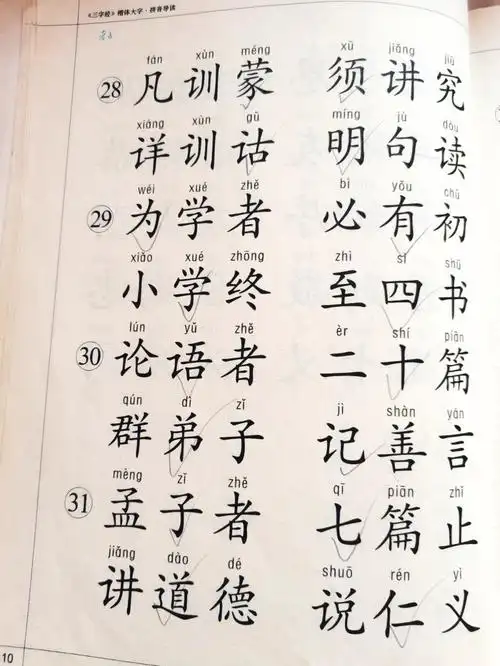 《三字经》楷体大字·拼音导读
fán xùn méng xū jiǎng jiū
28 凡训蒙 须讲究
xiáng xùn gǔ míng jù dòu
详训诂 明句读
wéi xué zhě bì yǒu chū
29 为学者 必有初
xiǎo xué zhōng zhì sì shū
小学终 至四书
lún yǔ zhě èr shí piān
30 论语者 二十篇
qún dì zǐ jì shàn yán
群弟子 记善言
mèng zǐ zhě qī piān zhǐ
31 孟子者 七篇止
jiǎng dào dé shuō rén yì
讲道德 说仁义
10